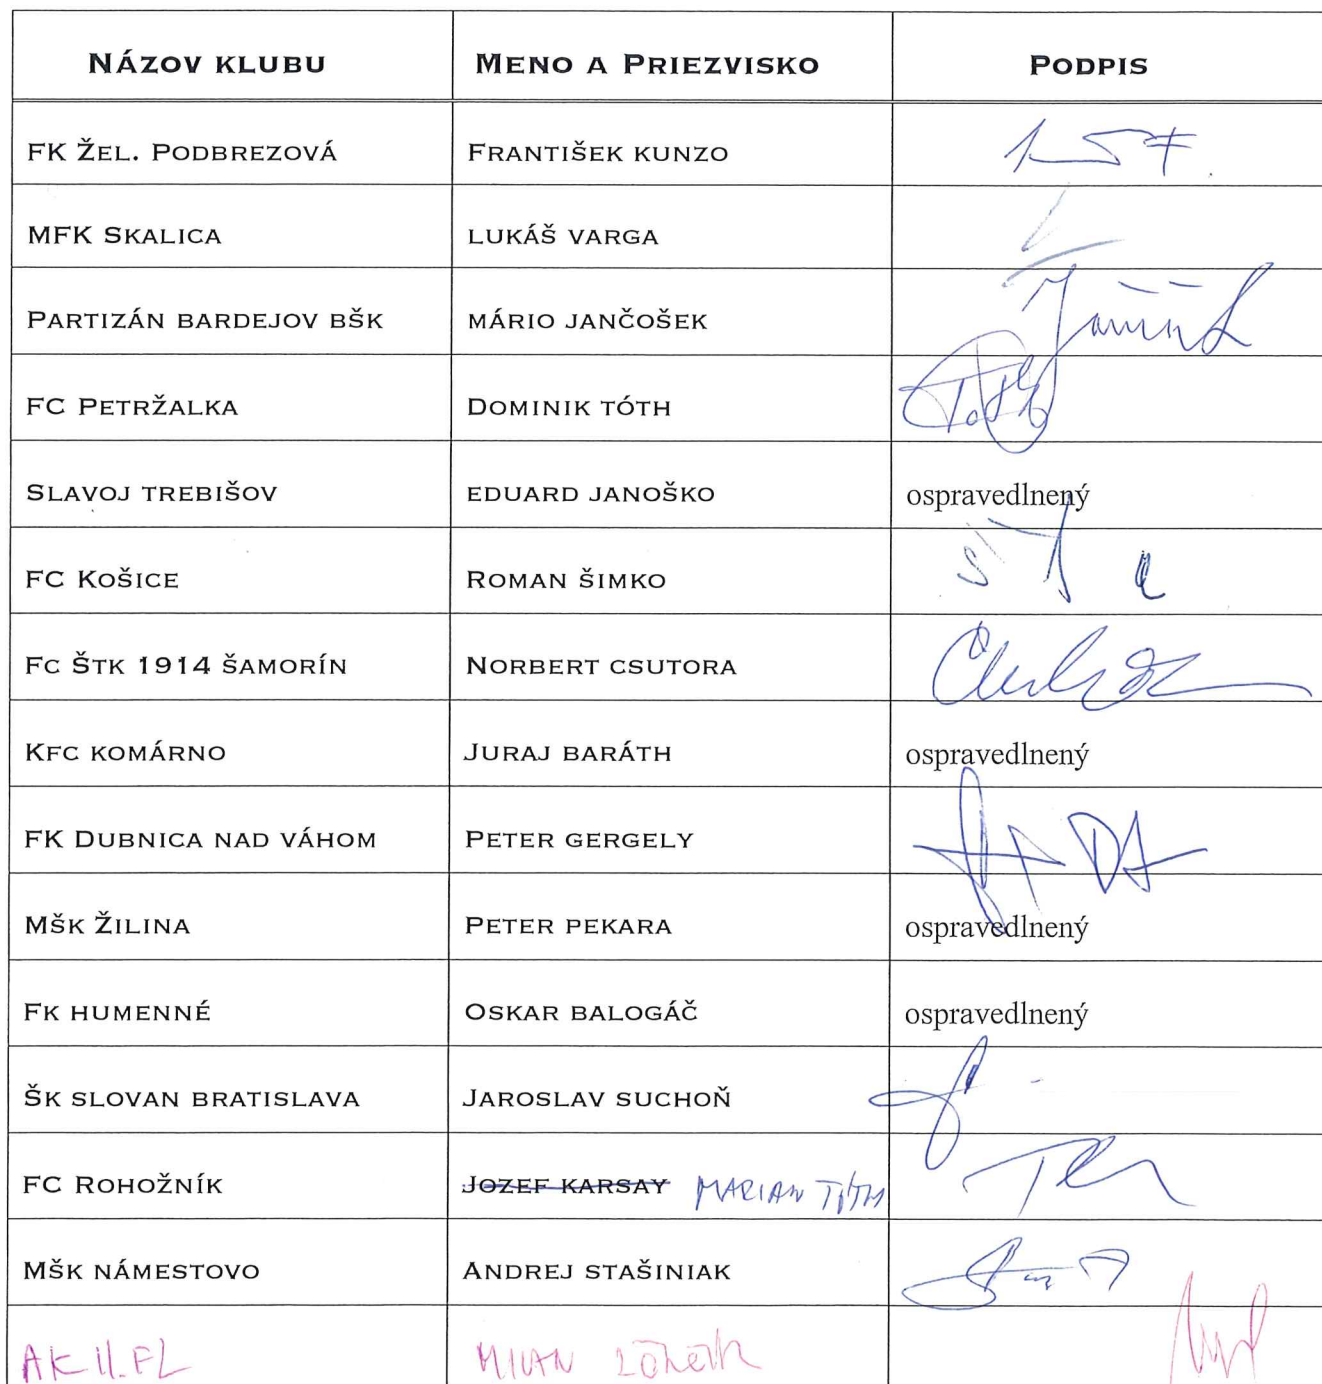 NÁZOV KLUBU MENO A PRIEZVISKO PODPIS
FK ŽEL. PODBREZOVÁ FRANTIŠEK KUNZO
MFK SKALICA LUKÁŠ VARGA
PARTIZÁN BARDEJOV BŠK MÁRIO JANČOŠEK
FC PETRŽALKA DOMINIK TÓTH
SLAVOJ TREBIŠOV EDUARD JANOŠKO ospravedlnený
FC KOŠICE ROMAN ŠIMKO
FC ŠTK 1914 ŠAMORÍN NORBERT CSUTORA
KFC KOMÁRNO JURAJ BARÁTH ospravedlnený
FK DUBNICA NAD VÁHOM PETER GERGELY
MŠK ŽILINA PETER PEKARA ospravedlnený
FK HUMENNÉ OSKAR BALOGÁČ ospravedlnený
ŠK SLOVAN BRATISLAVA JAROSLAV SUCHOŇ
FC ROHOŽNÍK JOZEF KARSAY MARIAN TÓTH
MŠK NÁMESTOVO ANDREJ STAŠINIAK
AK II.FL MILAN